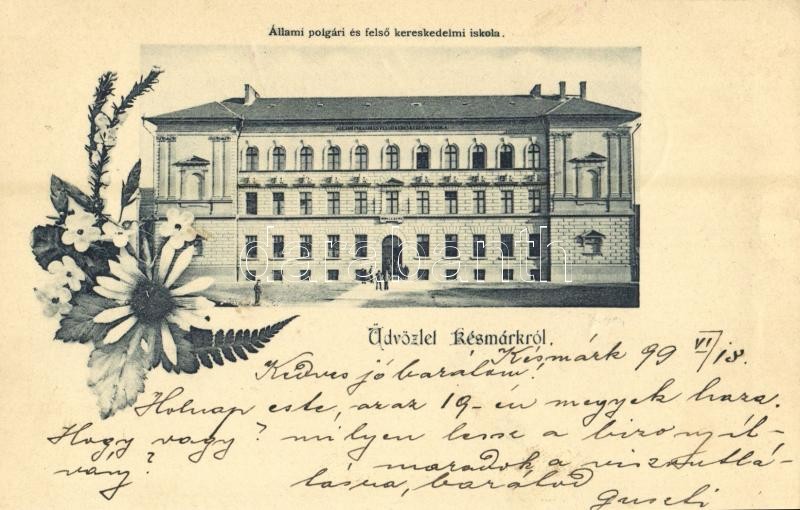 Állami polgári és felső kereskedelmi iskola.
darabanth
Üdvözlet Késmárkról.
Késmárk 99 VI/18.
Kedves jó barátom!
Holnap este, azaz 19-én megyek haza.
Hogy vagy? milyen lesse a bizonyít-
vány?
maradok a viszontlá-
tásra, barátod
Guszti